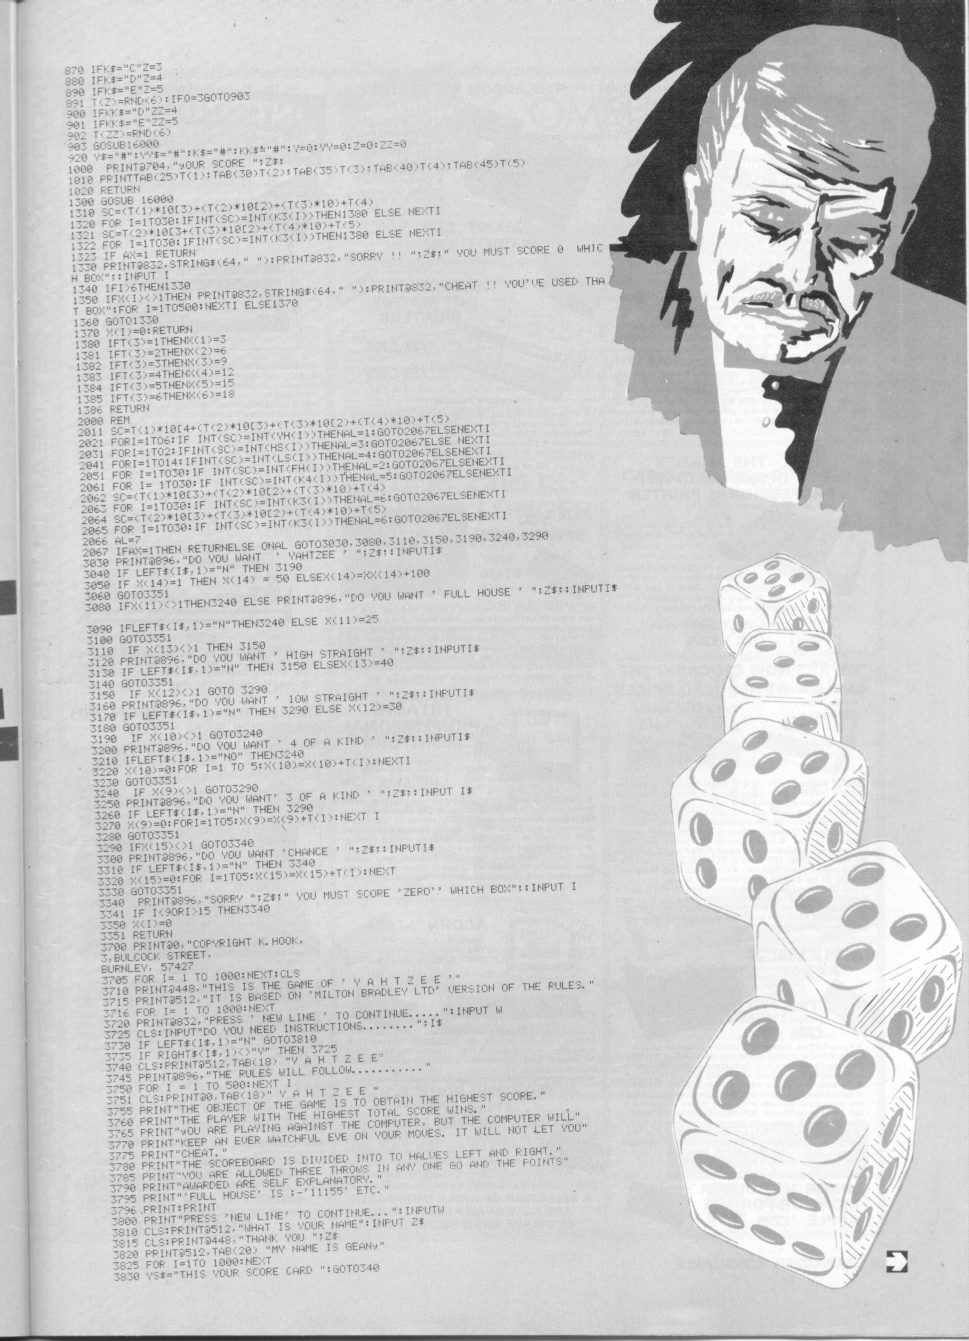 870 IFK$="C"Z=3
880 IFK$="D"Z=4
890 IFK$="E"Z=5
891 T(Z)=RND(6):IFO=3GOTO903
900 IFKK$="D"ZZ=4
901 IFKK$="E"ZZ=5
902 T(ZZ)=RND(6)
903 GOSUB16000
920 Y$="#":YY$="#":K$="#":KK$="#":Y=0:YY=0:Z=0:ZZ=0
1000  PRINT@704,"yOUR SCORE ";Z$;
1010 PRINTTAB(25)T(1);TAB(30)T(2);TAB(35)T(3);TAB(40)T(4);TAB(45)T(5)
1020 RETURN
1300 GOSUB 16000
1310 SC=(T(1)*10[3)+(T(2)*10[2)+(T(3)*10)+T(4)
1320 FOR I=1TO30:IFINT(SC)=INT(K3(I))THEN1380 ELSE NEXTI
1321 SC=T(2)*10[3+(T(3)*10[2)+(T(4)*10)+T(5)
1322 FOR I=1TO30:IFINT(SC)=INT(K3(I))THEN1380 ELSE NEXTI
1323 IF AX=1 RETURN
1330 PRINT@832,STRING$(64," ");:PRINT@832,"SORRY !! ";Z$;" YOU MUST SCORE 0  WHIC
H BOX";:INPUT I
1340 IFI>6THEN1330
1350 IFX(I)<>1THEN PRINT@832,STRING$(64," ");:PRINT@832,"CHEAT !! YOU'VE USED THA
T BOX";:FOR I=1TO500:NEXTI ELSE1370
1360 GOTO1330
1370 X(I)=0:RETURN
1380 IFT(3)=1THENX(1)=3
1381 IFT(3)=2THENX(2)=6
1382 IFT(3)=3THENX(3)=9
1383 IFT(3)=4THENX(4)=12
1384 IFT(3)=5THENX(5)=15
1385 IFT(3)=6THENX(6)=18
1386 RETURN
2000 REM
2011 SC=T(1)*10[4+(T(2)*10[3)+(T(3)*10[2)+(T(4)*10)+T(5)
2021 FORI=1TO6:IF INT(SC)=INT(YH(I))THENAL=1:GOTO2067ELSENEXTI
2031 FORI=1TO2:IFINT(SC)=INT(HS(I))THENAL=3:GOTO2067ELSE NEXTI
2041 FORI=1TO14:IFINT(SC)=INT(LS(I))THENAL=4:GOTO2067ELSENEXTI
2051 FOR I=1TO30:IF INT(SC)=INT(FH(I))THENAL=2:GOTO2067ELSENEXTI
2061 FOR I= 1TO30:IF INT(SC)=INT(K4(I))THENAL=5:GOTO2067ELSENEXTI
2062 SC=(T(1)*10[3)+(T(2)*10[2)+(T(3)*10)+T(4)
2063 FOR I=1TO30:IF INT(SC)=INT(K3(I))THENAL=6:GOTO2067ELSENEXTI
2064 SC=(T(2)*10[3)+(T(3)*10[2)+(T(4)*10)+T(5)
2065 FOR I=1TO30:IF INT(SC)=INT(K3(I))THENAL=6:GOTO2067ELSENEXTI
2066 AL=7
2067 IFAX=1THEN RETURNELSE ONAL GOTO3030,3080,3110,3150,3190,3240,3290
3030 PRINT@896,"DO YOU WANT  ' YAHTZEE ' ";Z$;:INPUTI$
3040 IF LEFT$(I$,1)="N" THEN 3190
3050 IF X(14)=1 THEN X(14) = 50 ELSEX(14)=XX(14)+100
3060 GOTO3351
3080 IFX(11)<>1THEN3240 ELSE PRINT@896,"DO YOU WANT ' FULL HOUSE ' ";Z$;:INPUTI$
3090 IFLEFT$(I$,1)="N"THEN3240 ELSE X(11)=25
3100 GOTO3351
3110  IF X(13)<>1 THEN 3150
3120 PRINT@896,"DO YOU WANT ' HIGH STRAIGHT ' ";Z$;:INPUTI$
3130 IF LEFT$(I$,1)="N" THEN 3150 ELSEX(13)=40
3140 GOTO3351
3150  IF X(12)<>1 GOTO 3290
3160 PRINT@896,"DO YOU WANT ' lOW STRAIGHT '  ";Z$;:INPUTI$
3170 IF LEFT$(I$,1)="N" THEN 3290 ELSE X(12)=30
3180 GOTO3351
3190  IF X(10)<>1 GOTO3240
3200 PRINT@896,"DO YOU WANT ' 4 OF A KIND '  ";Z$;:INPUTI$
3210 IFLEFT$(I$,1)="NO" THEN3240
3220 X(10)=0:FOR I=1 TO 5:X(10)=X(10)+T(I):NEXTI
3230 GOTO3351
3240  IF X(9)<>1 GOTO3290
3250 PRINT@896,"DO YOU WANT' 3 OF A KIND '  ";Z$;:INPUT I$
3260 IF LEFT$(I$,1)="N" THEN 3290
3270 X(9)=0:FORI=1TO5:X(9)=X(9)+T(I):NEXT I
3280 GOTO3351
3290 IFX(15)<>1 GOTO3340
3300 PRINT@896,"DO YOU WANT 'CHANCE ' ";Z$;:INPUTI$
3310 IF LEFT$(I$,1)="N" THEN 3340
3320 X(15)=0:FOR I=1TO5:X(15)=X(15)+T(I):NEXT
3330 GOTO3351
3340  PRINT@896,"SORRY ";Z$;" YOU MUST SCORE 'ZERO'' WHICH BOX";:INPUT I
3341 IF I<9ORI>15 THEN3340
3350 X(I)=0
3351 RETURN
3700 PRINT@0,"COPYRIGHT K.HOOK,
3,BULCOCK STREET,
BURNLEY, 57427
3705 FOR I= 1 TO 1000:NEXT:CLS
3710 PRINT@448,"THIS IS THE GAME OF ' Y A H T Z E E '"
3715 PRINT@512,"IT IS BASED ON 'MILTON BRADLEY LTD' VERSION OF THE RULES."
3716 FOR I= 1 TO 1000:NEXT
3720 PRINT@832,"PRESS ' NEW LINE ' TO CONTINUE.....";:INPUT W
3725 CLS:INPUT"DO YOU NEED INSTRUCTIONS........";I$
3730 IF LEFT$(I$,1)="N" GOTO3810
3735 IF RIGHT$(I$,1)<>"Y" THEN 3725
3740 CLS:PRINT@512,TAB(18) "Y A H T Z E E"
3745 PRINT@896,"THE RULES WILL FOLLOW..........."
3750 FOR I = 1 TO 500:NEXT I
3751 CLS:PRINT@0,TAB(18)" Y A H T Z E E "
3755 PRINT"THE OBJECT OF THE GAME IS TO OBTAIN THE HIGHEST SCORE."
3760 PRINT"THE PLAYER WITH THE HIGHEST TOTAL SCORE WINS."
3765 PRINT"yOU ARE PLAYING AGAINST THE COMPUTER, BUT THE COMPUTER WILL"
3770 PRINT"KEEP AN EVER WATCHFUL EYE ON YOUR MOVES. IT WILL NOT LET YOU"
3775 PRINT"CHEAT."
3780 PRINT"THE SCOREBOARD IS DIVIDED INTO TO HALVES LEFT AND RIGHT."
3785 PRINT"YOU ARE ALLOWED THREE THROWS IN ANY ONE GO AND THE POINTS"
3790 PRINT"AWARDED ARE SELF EXPLANATORY."
3795 PRINT"'FULL HOUSE' IS :-'11155' ETC."
3796 PRINT:PRINT
3800 PRINT"PRESS 'NEW LINE' TO CONTINUE...";:INPUTW
3810 CLS:PRINT@512,"WHAT IS YOUR NAME";:INPUT Z$
3815 CLS:PRINT@448,"THANK YOU ";Z$
3820 PRINT@512,TAB(20) "MY NAME IS GEANy"
3825 FOR I=1TO 1000:NEXT
3830 YS$="THIS YOUR SCORE CARD ":GOTO340